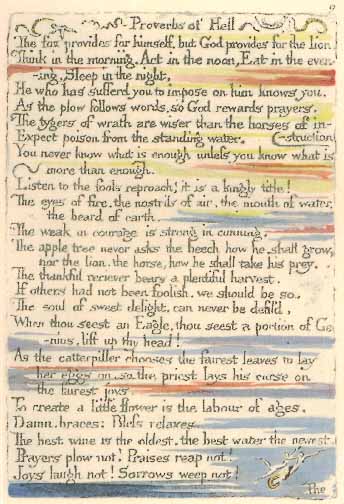 9
Proverbs of Hell
The fox provides for himself, but God provides for the lion.
Think in the morning, Act in the noon, Eat in the even-
-ing, Sleep in the night,
He who has sufferd you to impose on him knows you.
As the plow follows words, so God rewards prayers.
The tygers of wrath are wiser than the horses of in-
-struction
Expect poison from the standing water.
You never know what is enough unless you know what is
more than enough.
Listen to the fools reproach! it is a kingly title!
The eyes of fire, the nostrils of air, the mouth of water,
the beard of earth.
The weak in courage is strong in cunning.
The apple tree never asks the beech how he shall grow,
nor the lion, the horse, how he shall take his prey.
The thankful reciever bears a plentiful harvest.
If others had not been foolish, we should be so.
The soul of sweet delight, can never be defil'd,
When thou seest an Eagle, thou seest a portion of Ge-
-nius, lift up thy head!
As the catterpiller chooses the fairest leaves to lay
her eggs on, so the priest lays his curse on
the fairest joys.
To create a little flower is the labour of ages.
Damn, braces: Bless relaxes.
The best wine is the oldest, the best water the newest.
Prayers plow not! Praises reap not!
Joys laugh not! Sorrows weep not!
The